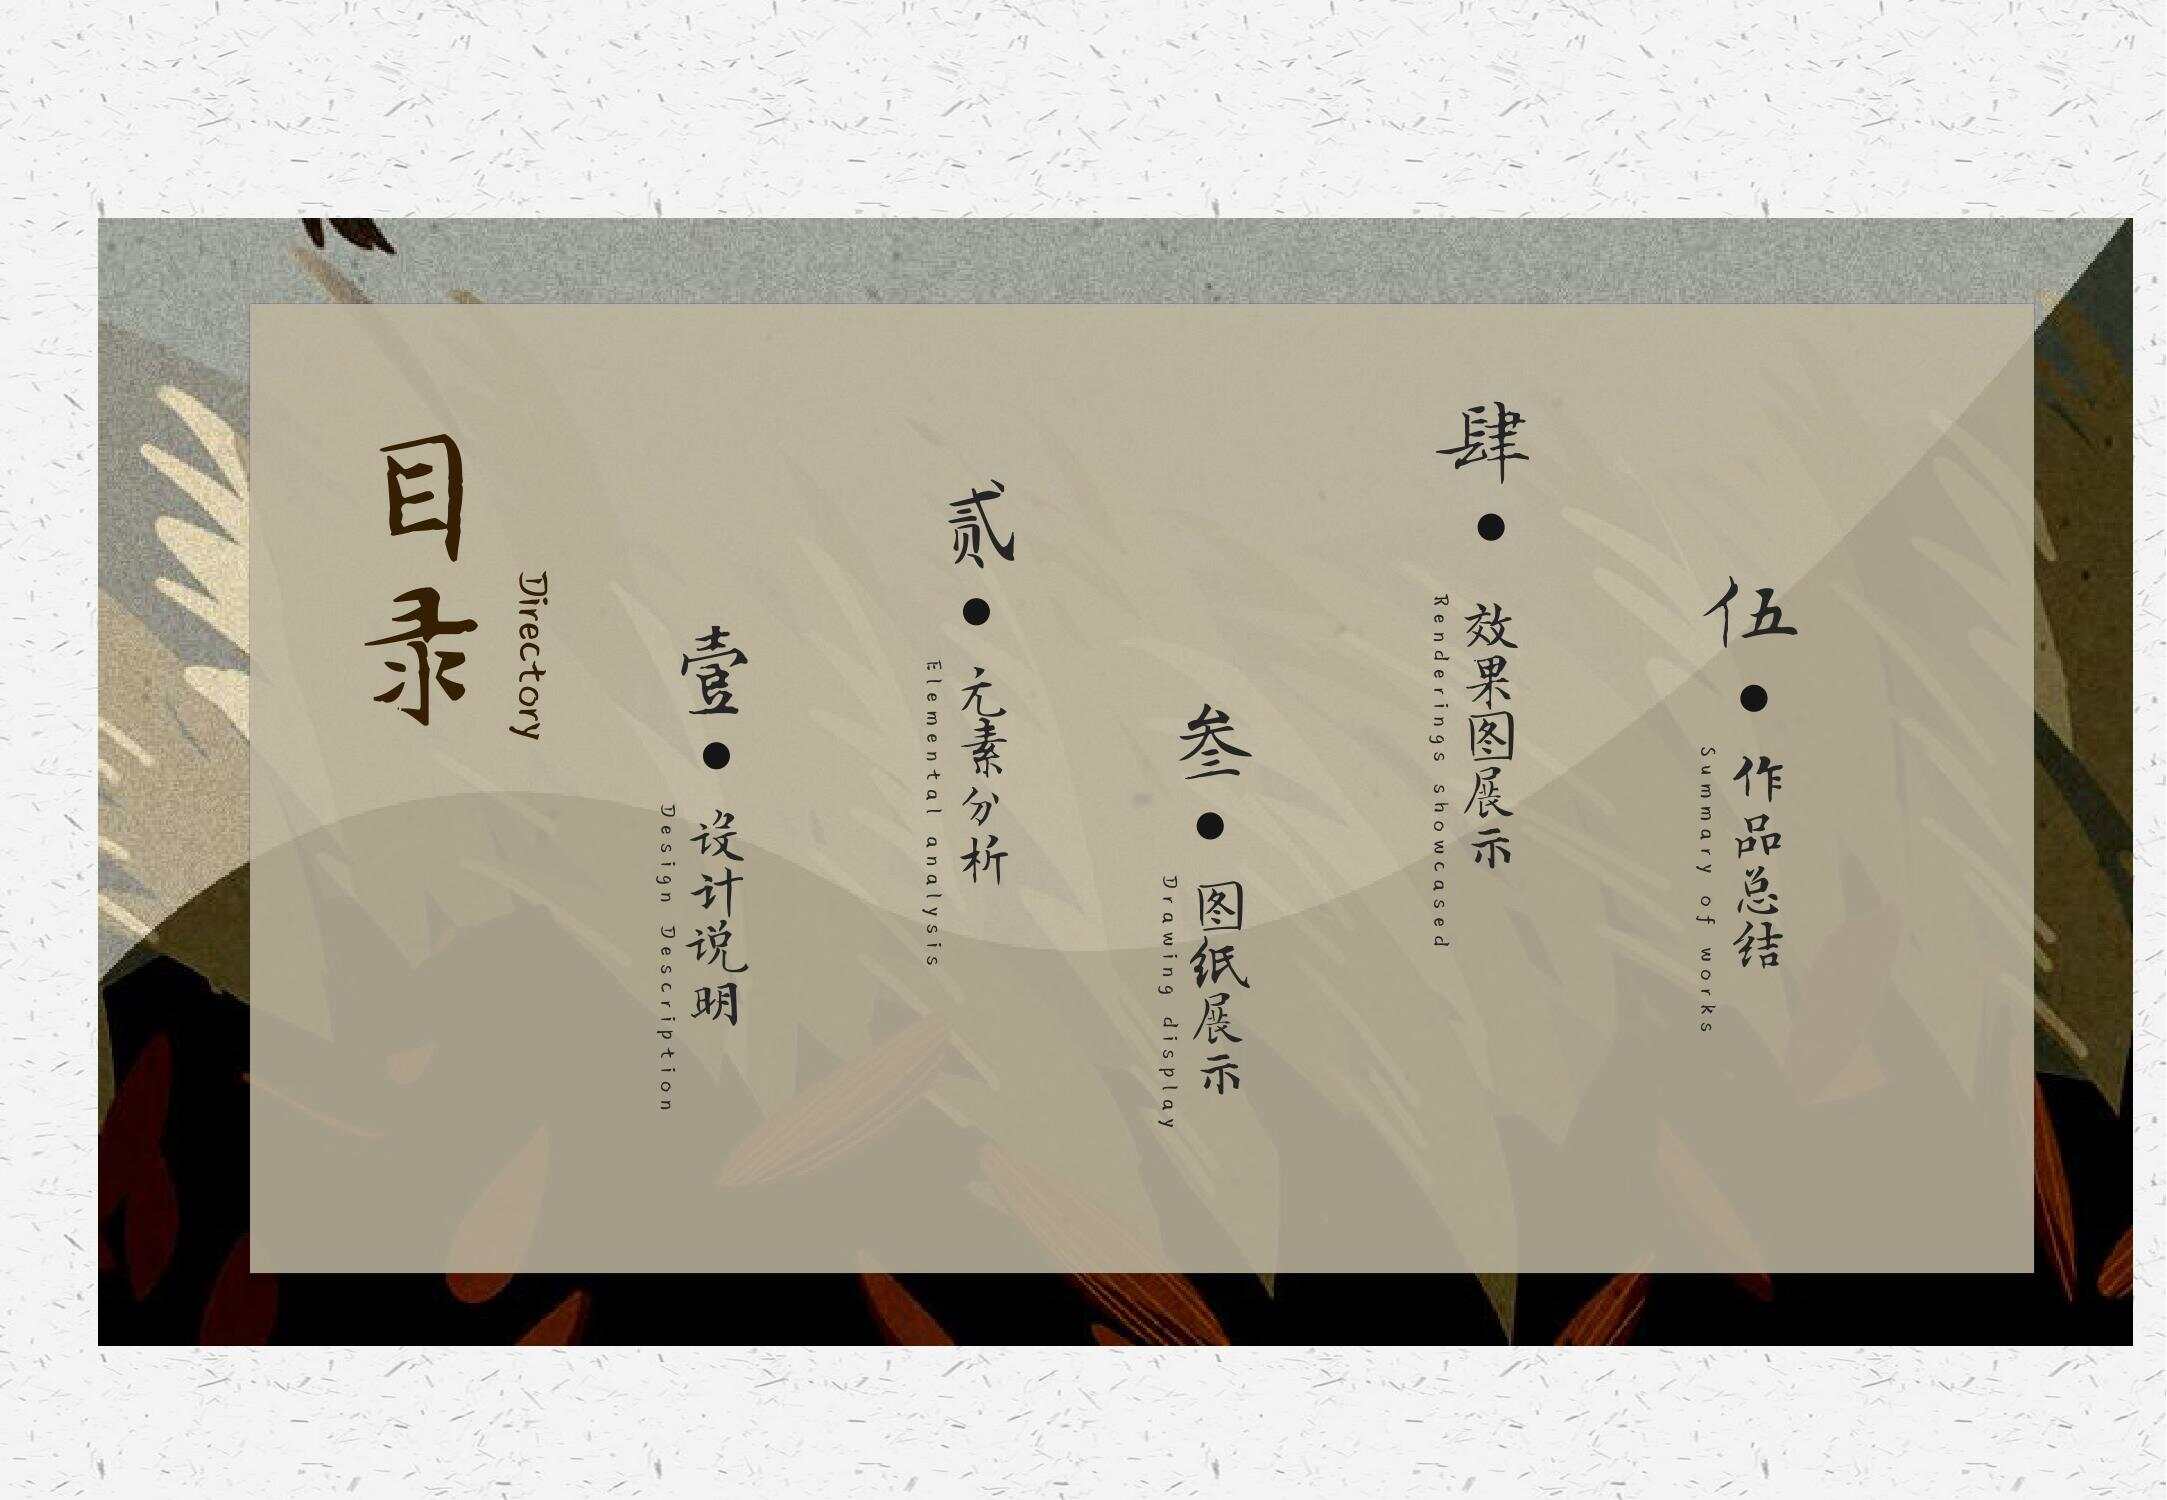 目录
Directory
壹
设计说明
Design Description
贰
元素分析
Elemental analysis
叁
图纸展示
Drawing display
肆
效果图展示
Renderings showcased
伍
作品总结
Summary of works